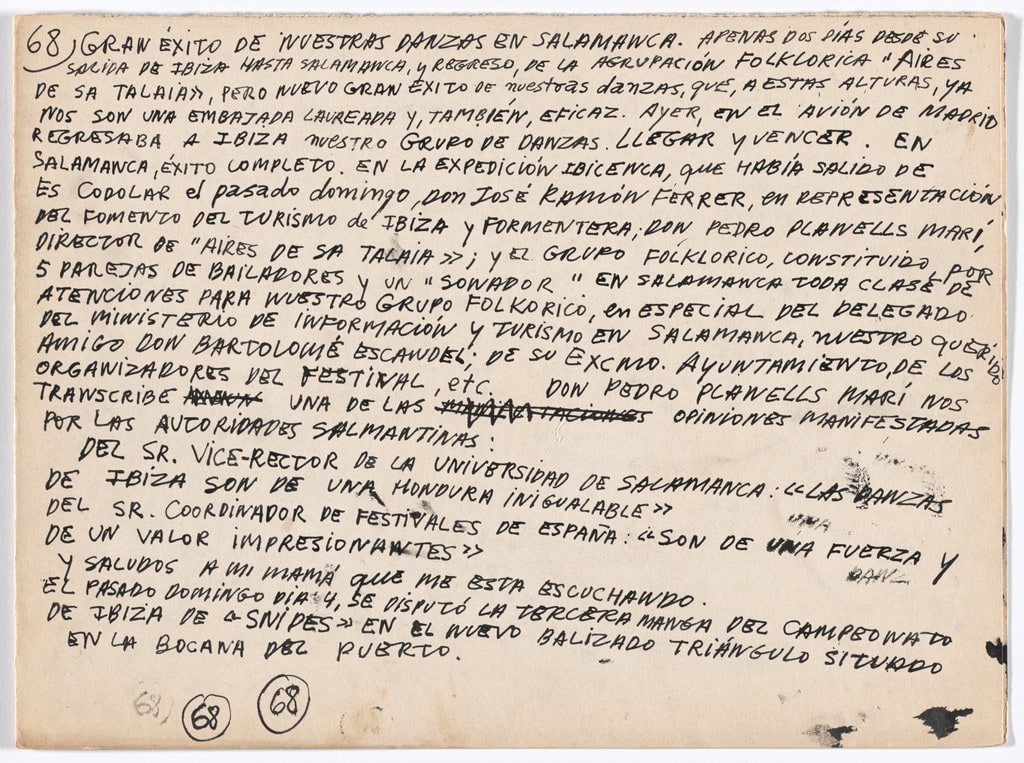 68) GRAN ÉXITO DE NUESTRAS DANZAS EN SALAMANCA. APENAS DOS DÍAS DESDE SU
SALIDA DE IBIZA HASTA SALAMANCA, y REGRESO, DE LA AGRUPACIÓN FOLKLORICA "AIRES
DE SA TALAIA», PERO NUEVO GRAN ÉXITO DE nuestras danzas, QUE, A ESTAS ALTURAS, YA
NOS SON UNA EMBAJADA LAUREADA Y, TAMBIÉN, EFICAZ. AYER, EN EL AVIÓN DE MADRID
REGRESABA A IBIZA nuestro GRUPO DE DANZAS. LLEGAR y VENCER. EN
SALAMANCA, ÉXITO COMPLETO. EN LA EXPEDICIÓN IBICENCA, que HABÍA SALIDO DE
ES CODOLAR el pasado domingo, DON JOSÉ RAMÓN FERRER, en REPRESENTACIÓN
DEL FOMENTO DEL TURISMO de IBIZA y FORMENTERA; DON PEDRO PLANELLS MARÍ,
DIRECTOR DE "AIRES DE SA TALAIA»; y EL GRUPO FOLKLORICO, CONSTITUIDO POR
5 PAREJAS DE BAILADORES y UN "SONADOR" EN SALAMANCA TODA CLASE DE
ATENCIONES PARA NUESTRO GRUPO FOLKORICO, en ESPECIAL DEL DELEGADO
DEL MINISTERIO DE INFORMACIÓN y TURISMO EN SALAMANCA, nuestro QUERIDO
AMIGO DON BARTOLOMÉ ESCANDEL; DE SU EXCMO. AYUNTAMIENTO, DE LOS
ORGANIZADORES DEL FESTIVAL, etc. DON PEDRO PLANELLS MARÍ NOS
TRANSCRIBE UNA DE LAS OPINIONES MANIFESTADAS
POR LAS AUTORIDADES SALMANTINAS:
DEL SR. VICE-RECTOR DE LA UNIVERSIDAD DE SALAMANCA: «LAS DANZAS
DE IBIZA SON DE UNA HONDURA INIGUALABLE»
DEL SR. COORDINADOR DE FESTIVALES DE ESPAÑA: «SON DE UNA FUERZA Y
DE UN VALOR IMPRESIONANTES»
Y SALUDOS A MI MAMÁ QUE ME ESTA ESCUCHANDO.
EL PASADO DOMINGO DIA 4, SE DISPUTÓ LA TERCERA MANGA DEL CAMPEONATO
DE IBIZA DE «SNIPES» EN EL NUEVO BALIZADO TRIÁNGULO SITUADO
EN LA BOCANA DEL PUERTO.
68) 68 68